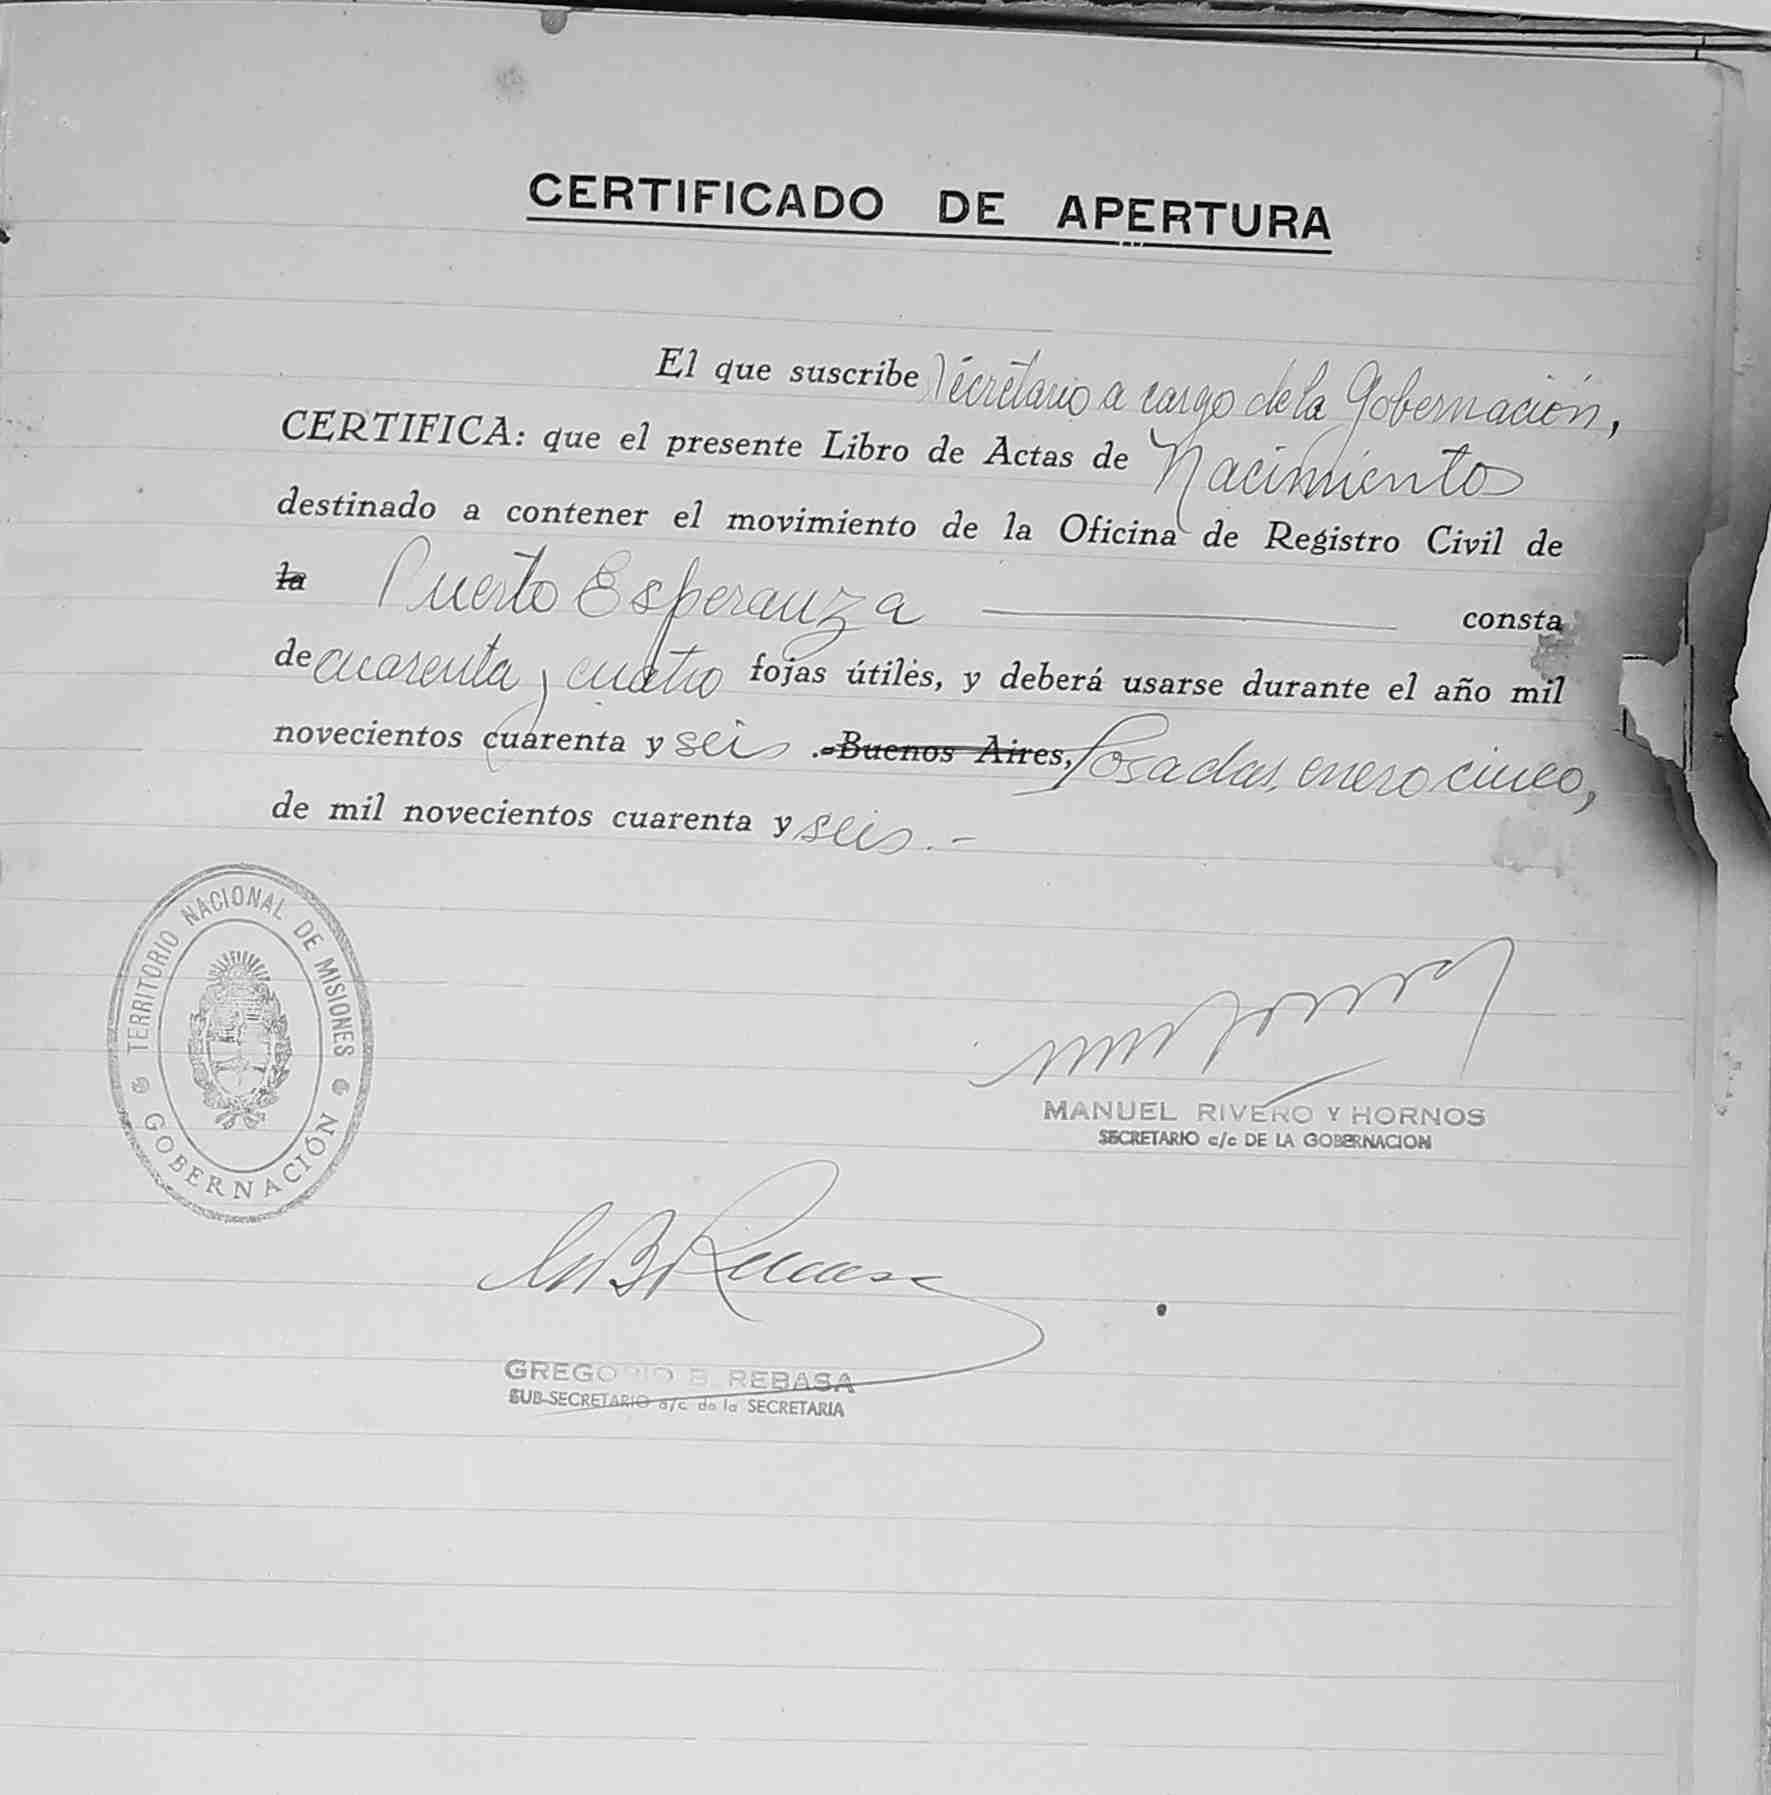 CERTIFICADO DE APERTURA
El que suscribe Secretario a cargo de la Gobernación,
CERTIFICA: que el presente Libro de Actas de Nacimiento
destinado a contener el movimiento de la Oficina de Registro Civil de
la Puerto Esperanza consta
de cuarenta y cuatro fojas útiles, y deberá usarse durante el año mil
novecientos cuarenta y seis .-Buenos Aires, Posadas, enero cinco,
de mil novecientos cuarenta y seis.-
TERRITORIO NACIONAL DE MISIONES
GOBERNACIÓN
MANUEL RIVERO Y HORNOS
SECRETARIO a/c DE LA GOBERNACION
GREGORIO B. REBASA
SUB-SECRETARIO a/c de la SECRETARIA